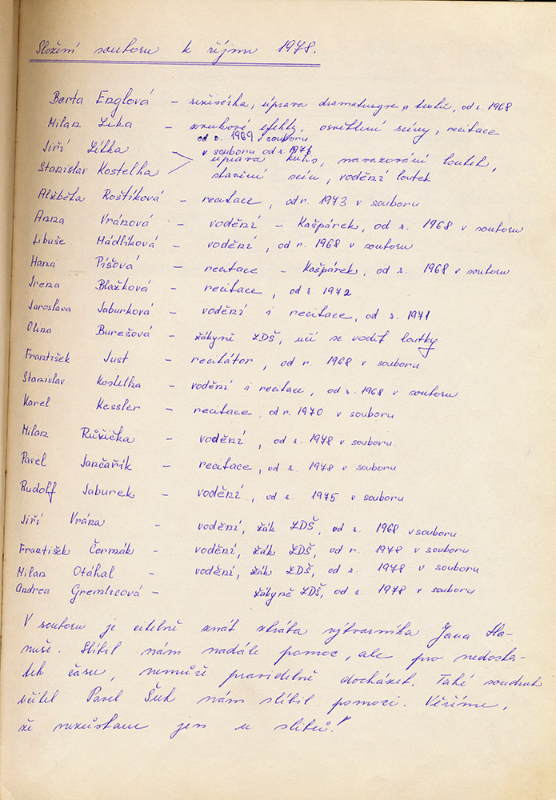 Složení souboru k říjnu 1978.
Berta Englová – režisérka, úprava dramaturgie, textu, od r. 1968
Milan Liška – zvukové efekty, osvětlení scény, recitace
od r. 1969 v souboru
Jiří Liška v souboru od r. 1971
úprava kulis, navazování loutek,
Stanislav Kostelka stavění scén, vodění loutek
Alžběta Roštíková – recitace, od r. 1973 v souboru
Anna Vránová – vodění – Kašpárek, od r. 1968 v souboru
Libuše Mádlíková – vodění, od r. 1968 v souboru
Hana Píšová – recitace – Kašpárek, od r. 1968 v souboru
Irena Blažková – recitace, od r. 1972
Jaroslava Jaburková – vodění i recitace, od r. 1971
Olina Burešová – žákyně ZDŠ, učí se vodit loutky
František Just – recitátor, od r. 1968 v souboru
Stanislav Kostelka – vodění i recitace, od r. 1968 v souboru
Karel Kessler – recitace, od r. 1970 v souboru
Milan Růžička – vodění, od r. 1978 v souboru
Pavel Jančařík – recitace, od r. 1978 v souboru
Rudolf Jaburek – vodění, od r. 1975 v souboru
Jiří Vrána – vodění, žák ZDŠ, od r. 1968 v souboru
František Čermák – vodění, žák ZDŠ, od r. 1978 v souboru
Milan Otáhal – vodění, žák ZDŠ, od r. 1978 v souboru
Andrea Gremlicová – žákyně ZDŠ, od r. 1978 v souboru
V souboru je citelně znát ztráta výtvarníka Jana Ha-
nuše. Slíbil nám nadále pomoc, ale pro nedosta-
tek času, nemůže pravidelně docházet. Také soudruh
učitel Pavel nám slíbil pomoci. Věříme,
že nezůstane jen u slibů!